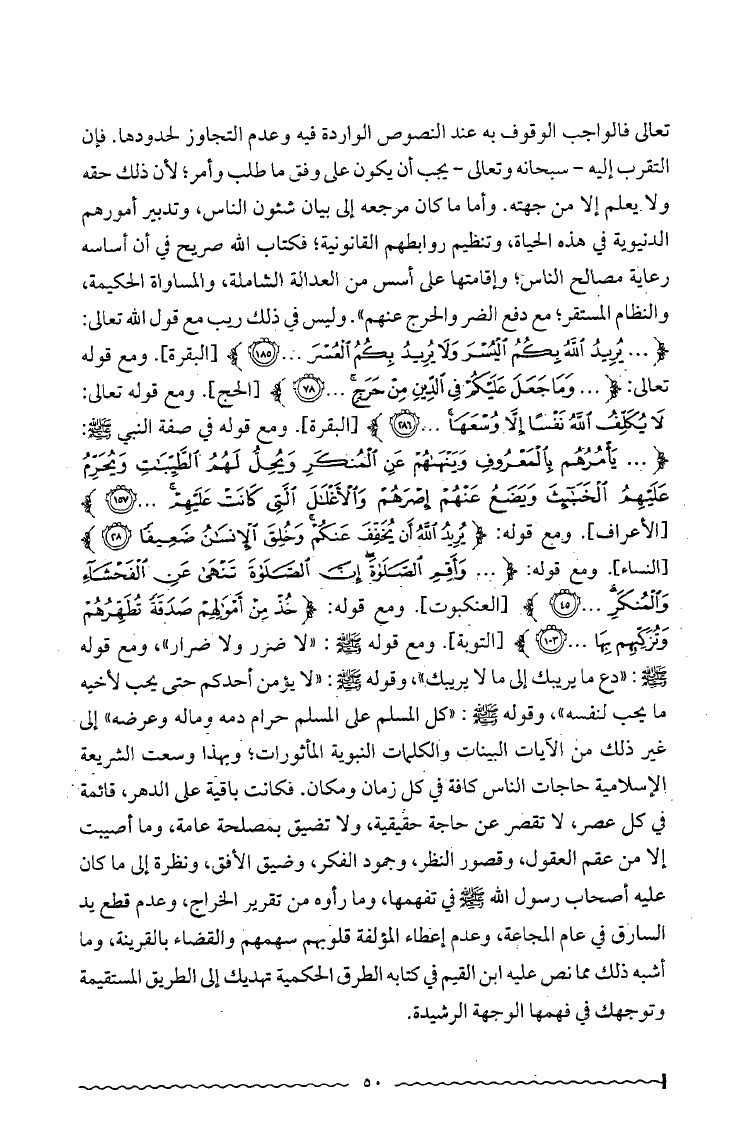 تعالى فالواجب الوقوف به عند النصوص الواردة فيه وعدم التجاوز لحدودها. فإن
التقرب إليه - سبحانه وتعالى - يجب أن يكون على وفق ما طلب وأمر؛ لأن ذلك حقه
ولا يعلم إلا من جهته. وأما ما كان مرجعه إلى بيان شئون الناس، وتدبير أمورهم
الدنيوية في هذه الحياة، وتنظيم روابطهم القانونية؛ فكتاب الله صريح في أن أساسه
رعاية مصالح الناس؛ وإقامتها على أسس من العدالة الشاملة، والمساواة الحكيمة،
والنظام المستقر؛ مع دفع الضر والحرج عنهم». وليس في ذلك ريب مع قول الله تعالى:
﴿ ... يُرِيدُ ٱللَّهُ بِكُمُ ٱلْيُسْرَ وَلَا يُرِيدُ بِكُمُ ٱلْعُسْرَ ... ١٨٥ ﴾ [البقرة]. ومع قوله
تعالى: ﴿ ... وَمَا جَعَلَ عَلَيْكُمْ فِى ٱلدِّينِ مِنْ حَرَجٍ ۚ ... ٧٨ ﴾ [الحج]. ومع قوله تعالى:
لَا يُكَلِّفُ ٱللَّهُ نَفْسًا إِلَّا وُسْعَهَا ۚ ... ٢٨٦ ﴾ [البقرة]. ومع قوله في صفة النبي ﷺ:
﴿ ... يَأْمُرُهُم بِٱلْمَعْرُوفِ وَيَنْهَىٰهُمْ عَنِ ٱلْمُنكَرِ وَيُحِلُّ لَهُمُ ٱلطَّيِّبَٰتِ وَيُحَرِّمُ
عَلَيْهِمُ ٱلْخَبَٰٓئِثَ وَيَضَعُ عَنْهُمْ إِصْرَهُمْ وَٱلْأَغْلَٰلَ ٱلَّتِى كَانَتْ عَلَيْهِمْ ۚ ... ١٥٧ ﴾
[الأعراف]. ومع قوله: ﴿ يُرِيدُ ٱللَّهُ أَن يُخَفِّفَ عَنكُمْ ۚ وَخُلِقَ ٱلْإِنسَٰنُ ضَعِيفًا ٢٨ ﴾
[النساء]. ومع قوله: ﴿ ... وَأَقِمِ ٱلصَّلَوٰةَ ۖ إِنَّ ٱلصَّلَوٰةَ تَنْهَىٰ عَنِ ٱلْفَحْشَآءِ
وَٱلْمُنكَرِ ۗ ... ٤٥ ﴾ [العنكبوت]. ومع قوله: ﴿ خُذْ مِنْ أَمْوَٰلِهِمْ صَدَقَةً تُطَهِّرُهُمْ
وَتُزَكِّيهِم بِهَا ... ١٠٣ ﴾ [التوبة]. ومع قوله ﷺ : «لا ضرر ولا ضرار»، ومع قوله
ﷺ : «دع ما يريبك إلى ما لا يريبك»، وقوله ﷺ : «لا يؤمن أحدكم حتى يحب لأخيه
ما يحب لنفسه»، وقوله ﷺ : «كل المسلم على المسلم حرام دمه وماله وعرضه» إلى
غير ذلك من الآيات البينات والكلمات النبوية المأثورات؛ وبهذا وسعت الشريعة
الإسلامية حاجات الناس كافة في كل زمان ومكان. فكانت باقية على الدهر، قائمة
في كل عصر، لا تقصر عن حاجة حقيقية، ولا تضيق بمصلحة عامة، وما أصيبت
إلا من عقم العقول، وقصور النظر، وجمود الفكر، وضيق الأفق، ونظرة إلى ما كان
عليه أصحاب رسول الله ﷺ في تفهمها، وما رأوه من تقرير الخراج، وعدم قطع يد
السارق في عام المجاعة، وعدم إعطاء المؤلفة قلوبهم سهمهم والقضاء بالقرينة، وما
أشبه ذلك مما نص عليه ابن القيم في كتابه الطرق الحكمية تهديك إلى الطريق المستقيمة
وتوجهك في فهمها الوجهة الرشيدة.
٥٠